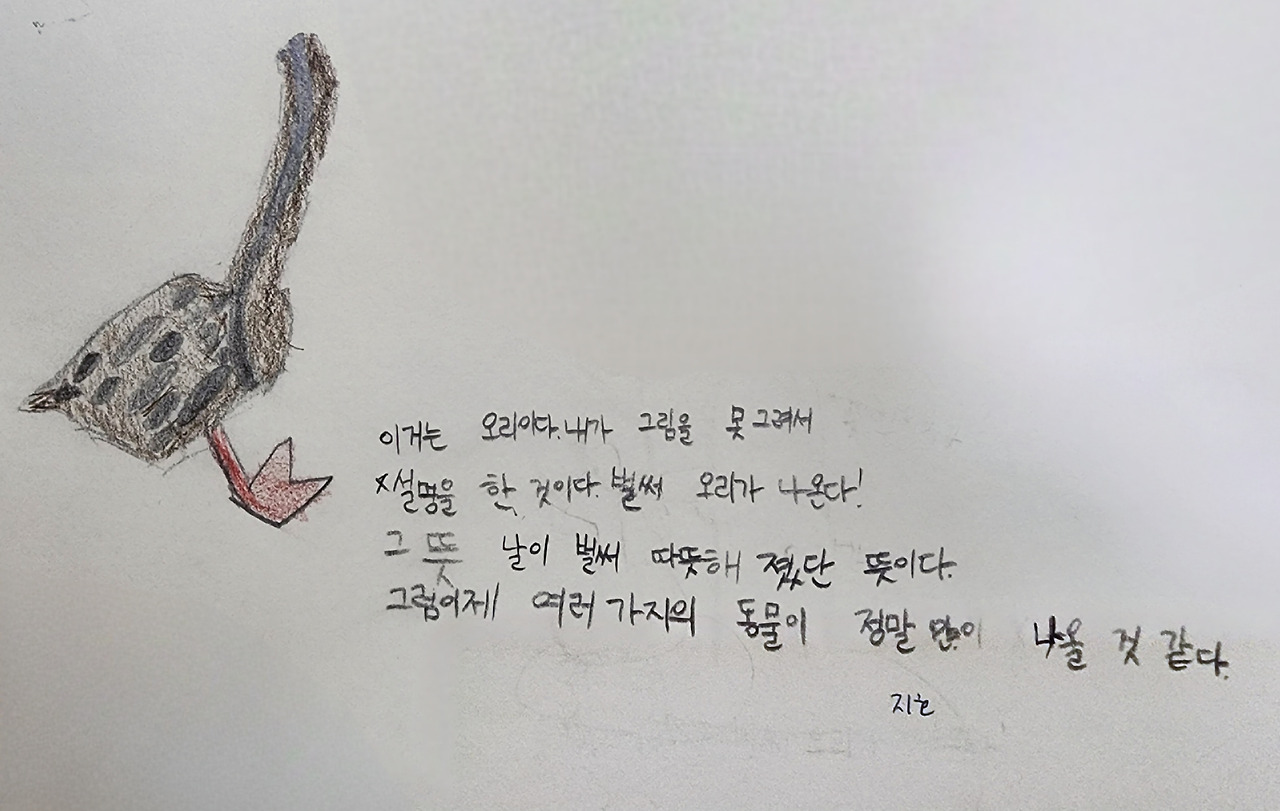 이거는 오리이다. 내가 그림을 못 그려서
x설명을 한 것이다. 벌써 오리가 나온다!
그 뜻 날이 벌써 따뜻해 졌단 뜻이다.
그럼이제 여러 가지의 동물이 정말 많이 나올 것 같다.
지호